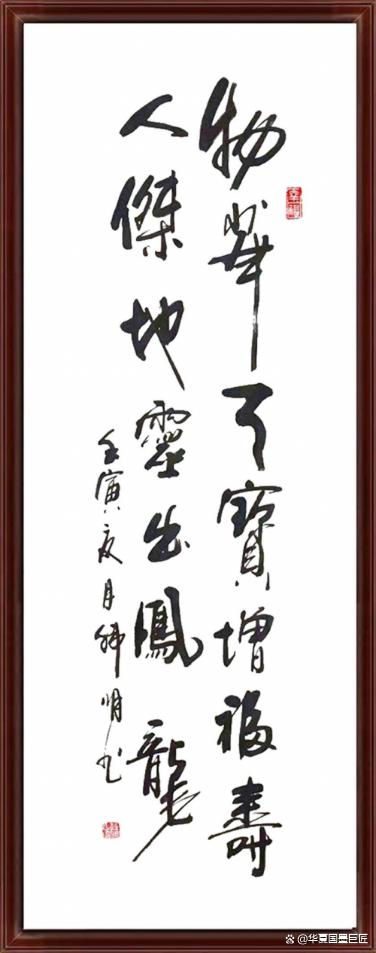 物華天寶增福壽
人傑地靈出鳳龍
壬寅夏月 明书
@华夏国墨巨匠